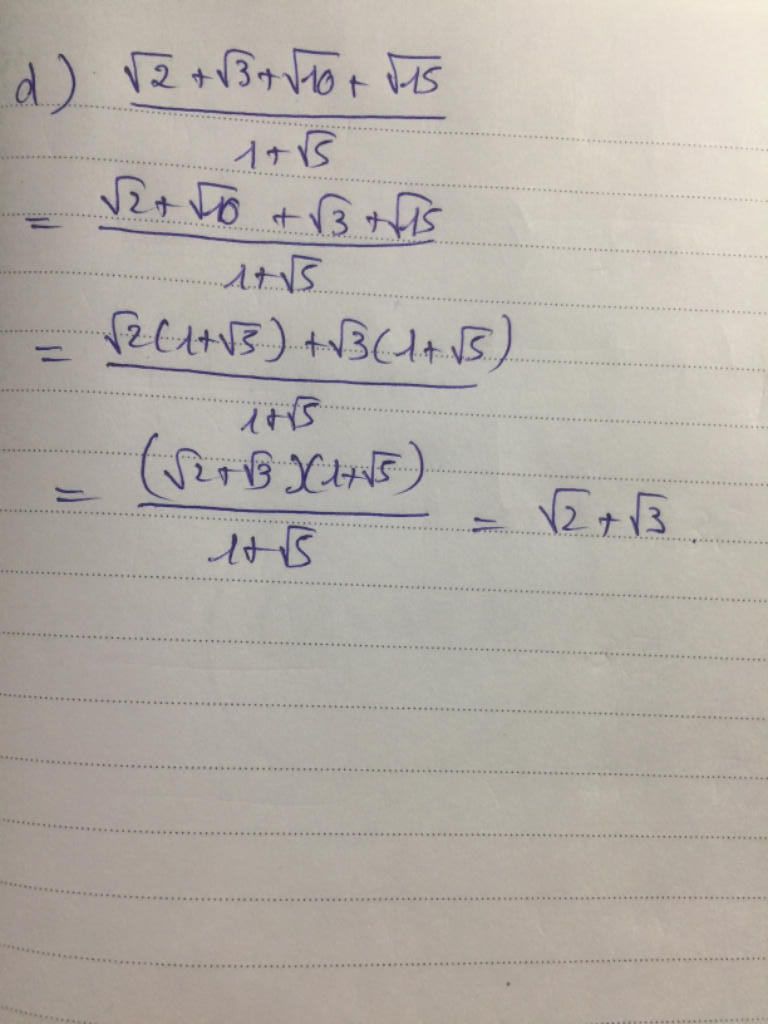 d) √2 + √3 + √10 + √15
1 + √5
= √2 + √10 + √3 + √15
1 + √5
= √2 (1+√3) + √3 (1+√5)
1+√5
= (√2+√3)(1+√5)
1+√5
= √2 + √3.